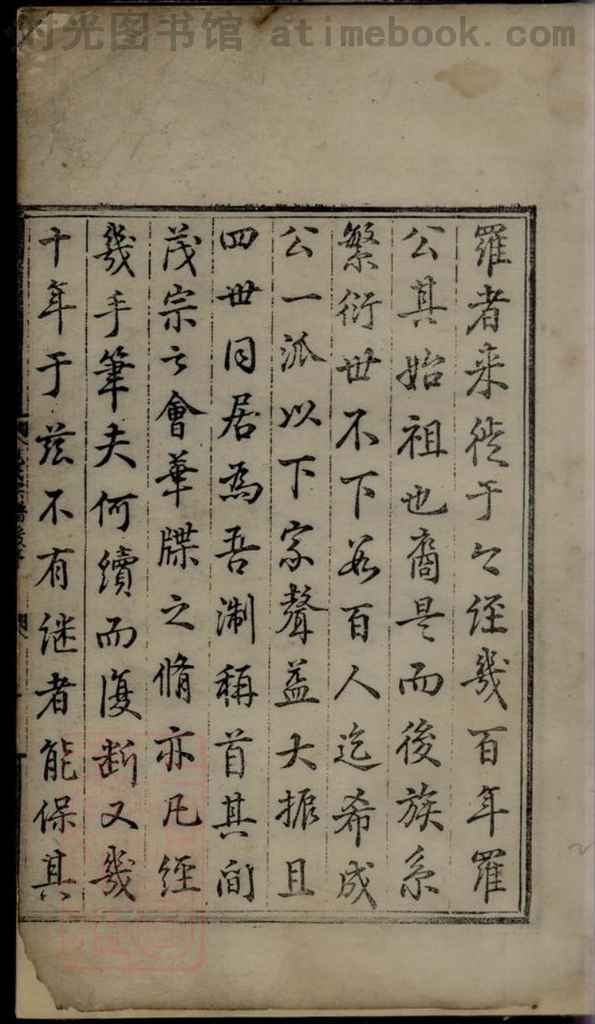 时光图书馆 atimebook.com
羅者来従于今経幾百年羅
公其始祖也裔是而後族系
繁衍世不下数百人迄希成
公一派以下家聲益大振且
四世同居為吾淛稱首其間
茂宗云會華牒之脩亦凡經
幾手筆夫何續而復断又幾
十年于茲不有继者能保其